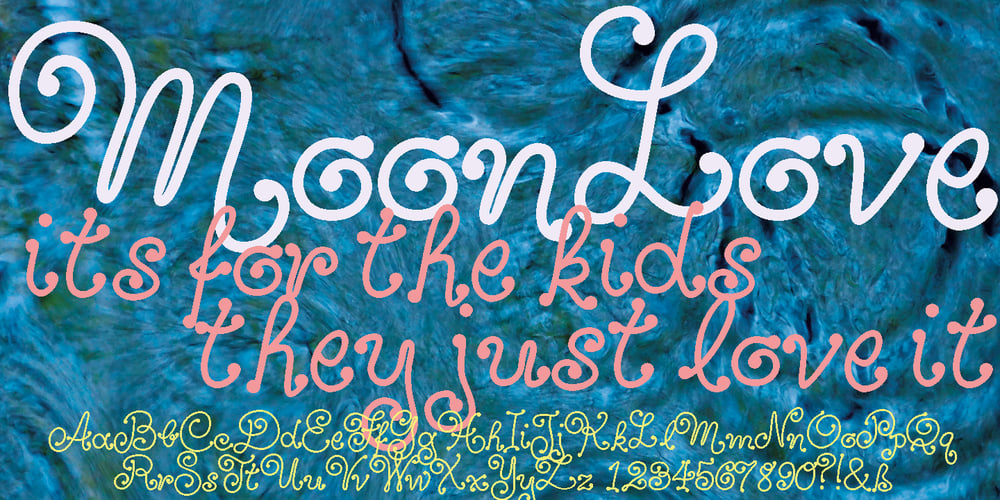 MoonLove
its for the kids
they just love it
AaBbCcDdEeFfGgHhIiJjKkLlMmNnOoPpQq
RrSsTtUuVvWwXxYyZz 1234567890?!&